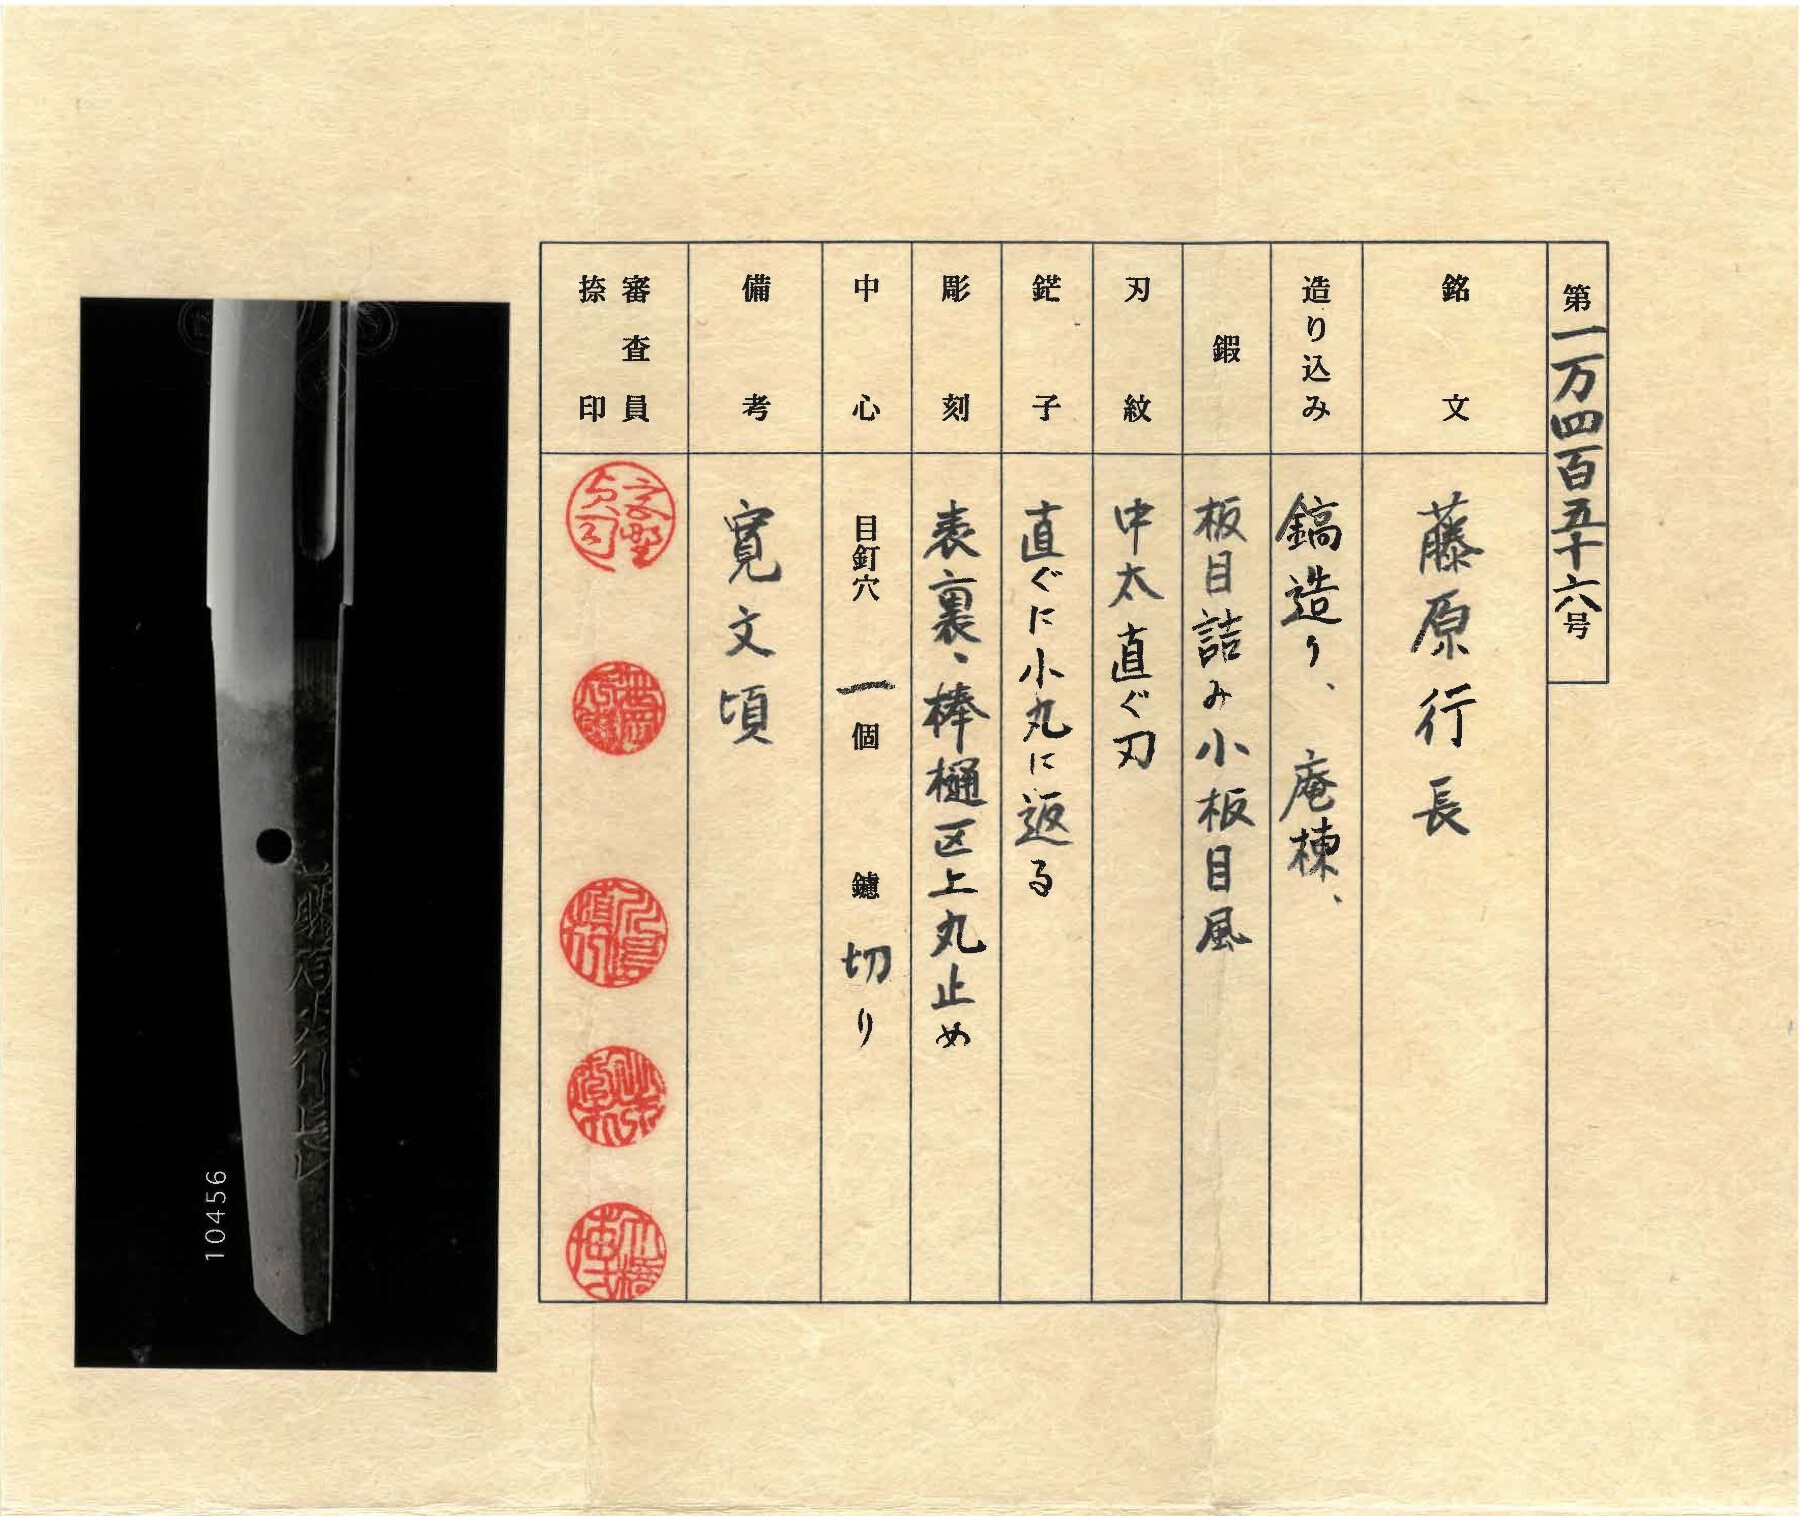 第一万四百五十六号
銘文
藤原行長
造り込み
鎬造り、庵棟、
鍜
板目詰み小板目風
刃紋
中太直ぐ刃
鋩子
直ぐに小丸に返る
彫刻
表裏、棒樋区上丸止め
中心
目釘穴 一個 鑢 切り
備考
寛文頃
審査員
捺印
10456